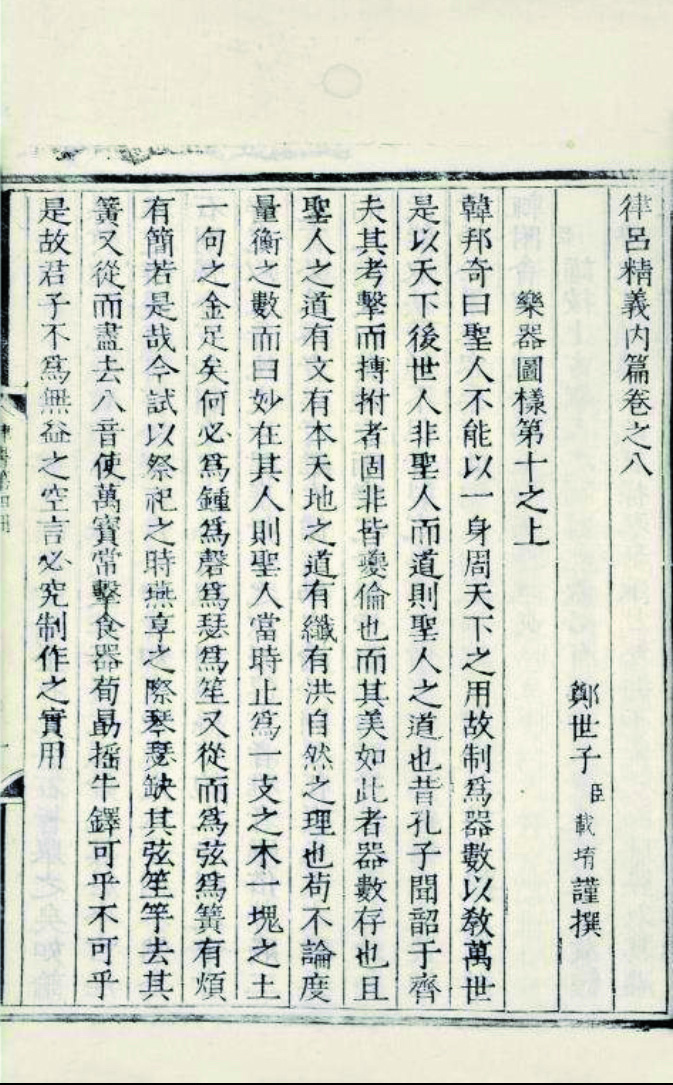 律呂精義內篇卷之八
鄭世子臣載堉謹撰
樂器圖樣第十之上
韓邦奇曰聖人不能以一身周天下之用故制爲器數以敎萬世
是以天下後世人非聖人而道則聖人之道也昔孔子聞韶于齊
夫其考擊而搏拊者固非皆夔倫也而其美如此者器數存也且
聖人之道有文有本天地之道有纖有洪自然之理也苟不論度
量衡之數而曰妙在其人則聖人當時止爲一支之木一塊之土
一句之金足矣何必爲鍾爲磬爲瑟爲笙又從而爲弦爲簧有煩
有簡若是哉今試以祭祀之時燕享之際琴瑟缺其弦笙竽去其
簧又從而盡去八音使萬寶常擊食器荀勗搖牛鐸可乎不可乎
是故君子不爲無益之空言必究制作之實用